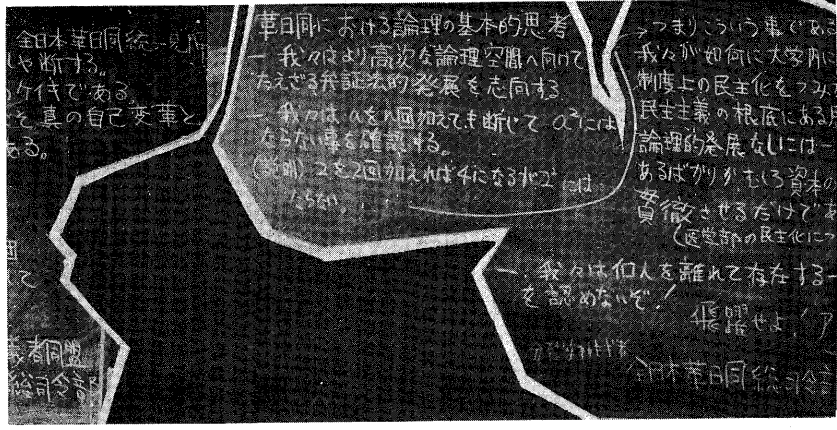 全日本革日同統一見
しや断する。
ケイキである
真の自己変革と
ある。
て
義者同盟
総司令部
革日同における論理の基本的思考
一 我々はより高次な論理空間へ向けて
たえざる弁証法的発展を志向する
一 我々はaをn回加えても断じてa²には
ならない事を確認する。
(説明) 2を2回加えれば4になるが2²には
ならない。
つまりこういう事である
我々が如何に大学内に
制度上の民主化をつみ
民主主義の根底にある
論理的発展なしには一
あるばかりかむしろ資本の
貫徹させるだけで
(医学部の民主化につ
一. 我々は個人を離れて存在する
を認めないぞ!
飛躍せよ! ア
全日本革日同総司令